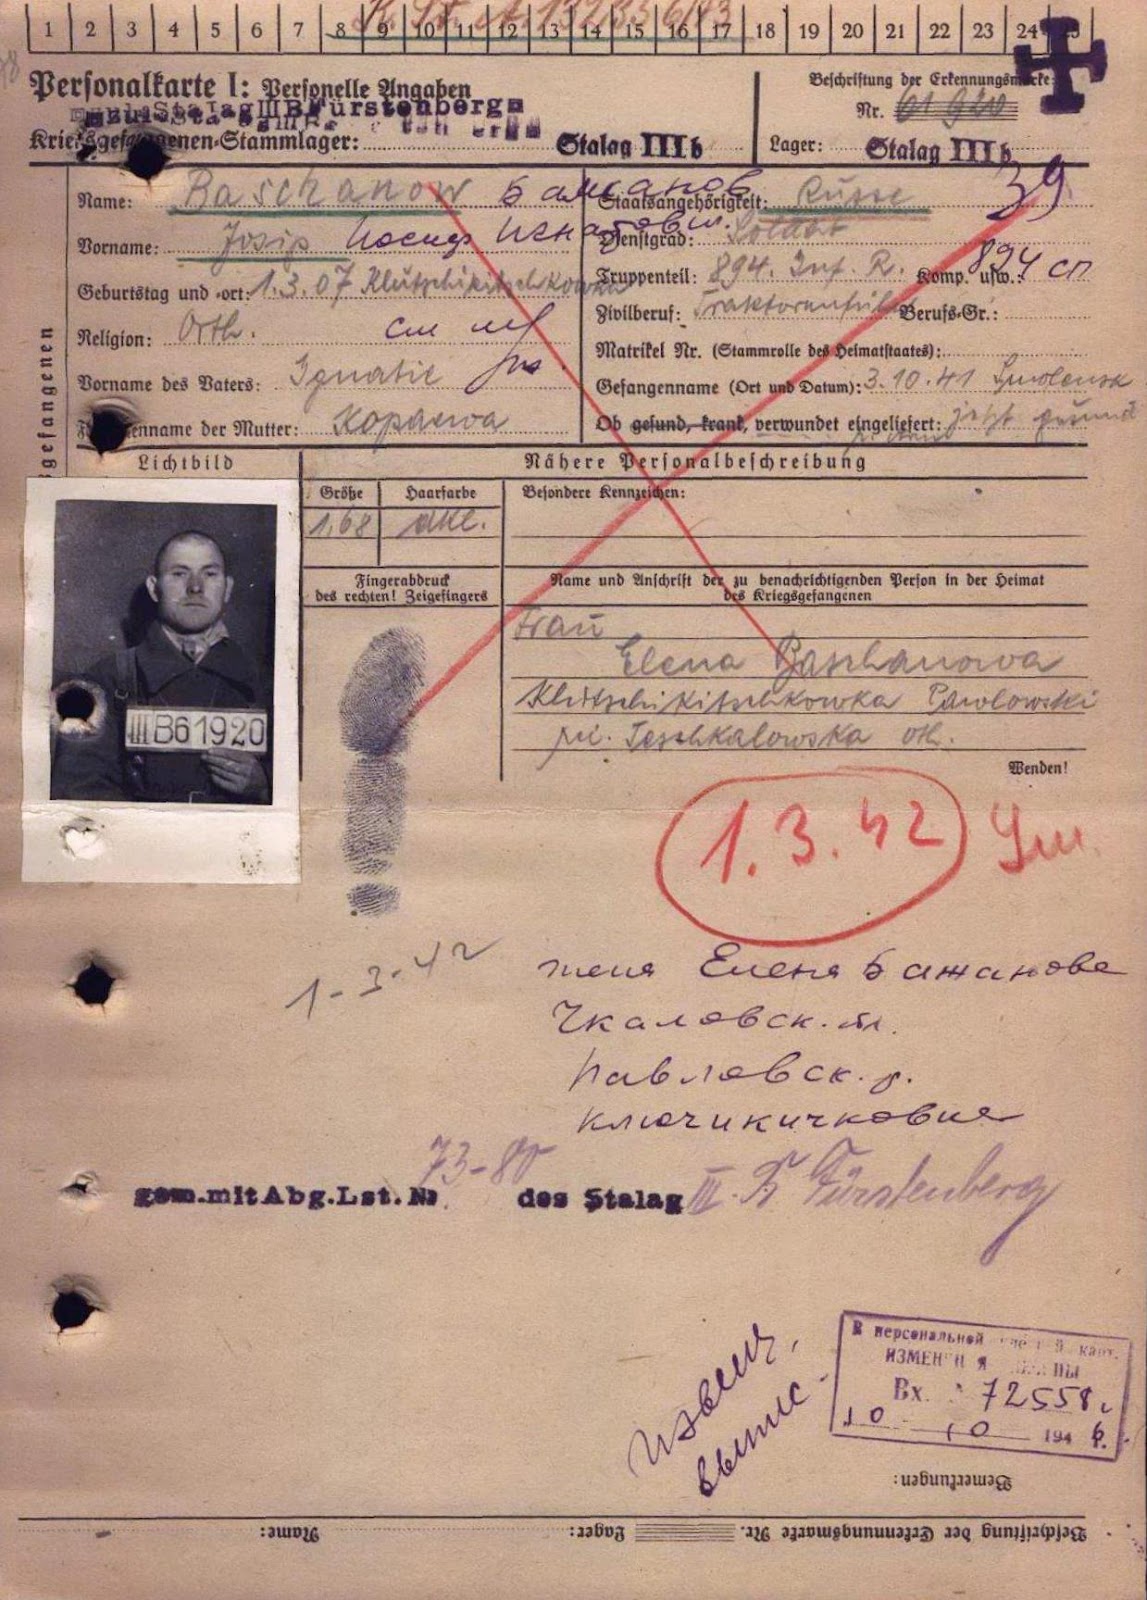 1 2 3 4 5 6 7 8 9 10 11 12 13 14 15 16 17 18 19 20 21 22 23 24 25
Personalkarte I: Personelle Angaben
Stalag III B Fürstenberg
Kriegsgefangenen-Stammlager: Stalag III b
Beschriftung der Erkennungsmarke
Nr. 61920
Lager: Stalag III b
39
Name: Baschanow Бажанов
Vorname: Josip Иосиф Игнатович
Geburtstag und -ort: 1.3.07 Klutschikitschkowka
Religion: Orth.
Vorname des Vaters: Ignatie
Familienname der Mutter: Kopaewa
Staatsangehörigkeit: Russe
Dienstgrad: Soldat
Truppenteil: 894. Inf. R. Komp. usw.: 894 сп
Zivilberuf: Berufs-Gr.:
Matrikel Nr. (Stammrolle des Heimatstaates):
Gefangenname (Ort und Datum): 3.10.41 Smolensk
Ob gesund, krank, verwundet eingeliefert: jetzt gesund
gefangenen
Lichtbild
Nähere Personalbeschreibung
Größe Haarfarbe Besondere Kennzeichen:
1,68 dkl.
Fingerabdruck
des rechten! Zeigefingers
Name und Anschrift der zu benachrichtigenden Person in der Heimat
des Kriegsgefangenen
Frau
Elena Baschanowa
Klutschikitschkowka Pawlowski
Tschkalowska
Wenden!
III B 61920
1.3.42
1-3-42
жена Елена Бажанова
Чкаловск. обл.
Павловск. р.
Ключикичковка
73-80
gem.mit Abg.Lst.Nr. des Stalag III. B Fürstenberg
извещ.
выпис.
В персональной карт.
ИЗМЕНЕНИЯ
Вх. 72558
10 10 1946 г.
Bemerkungen:
Beschriftung der Erkennungsmarke Nr. Lager: Name: